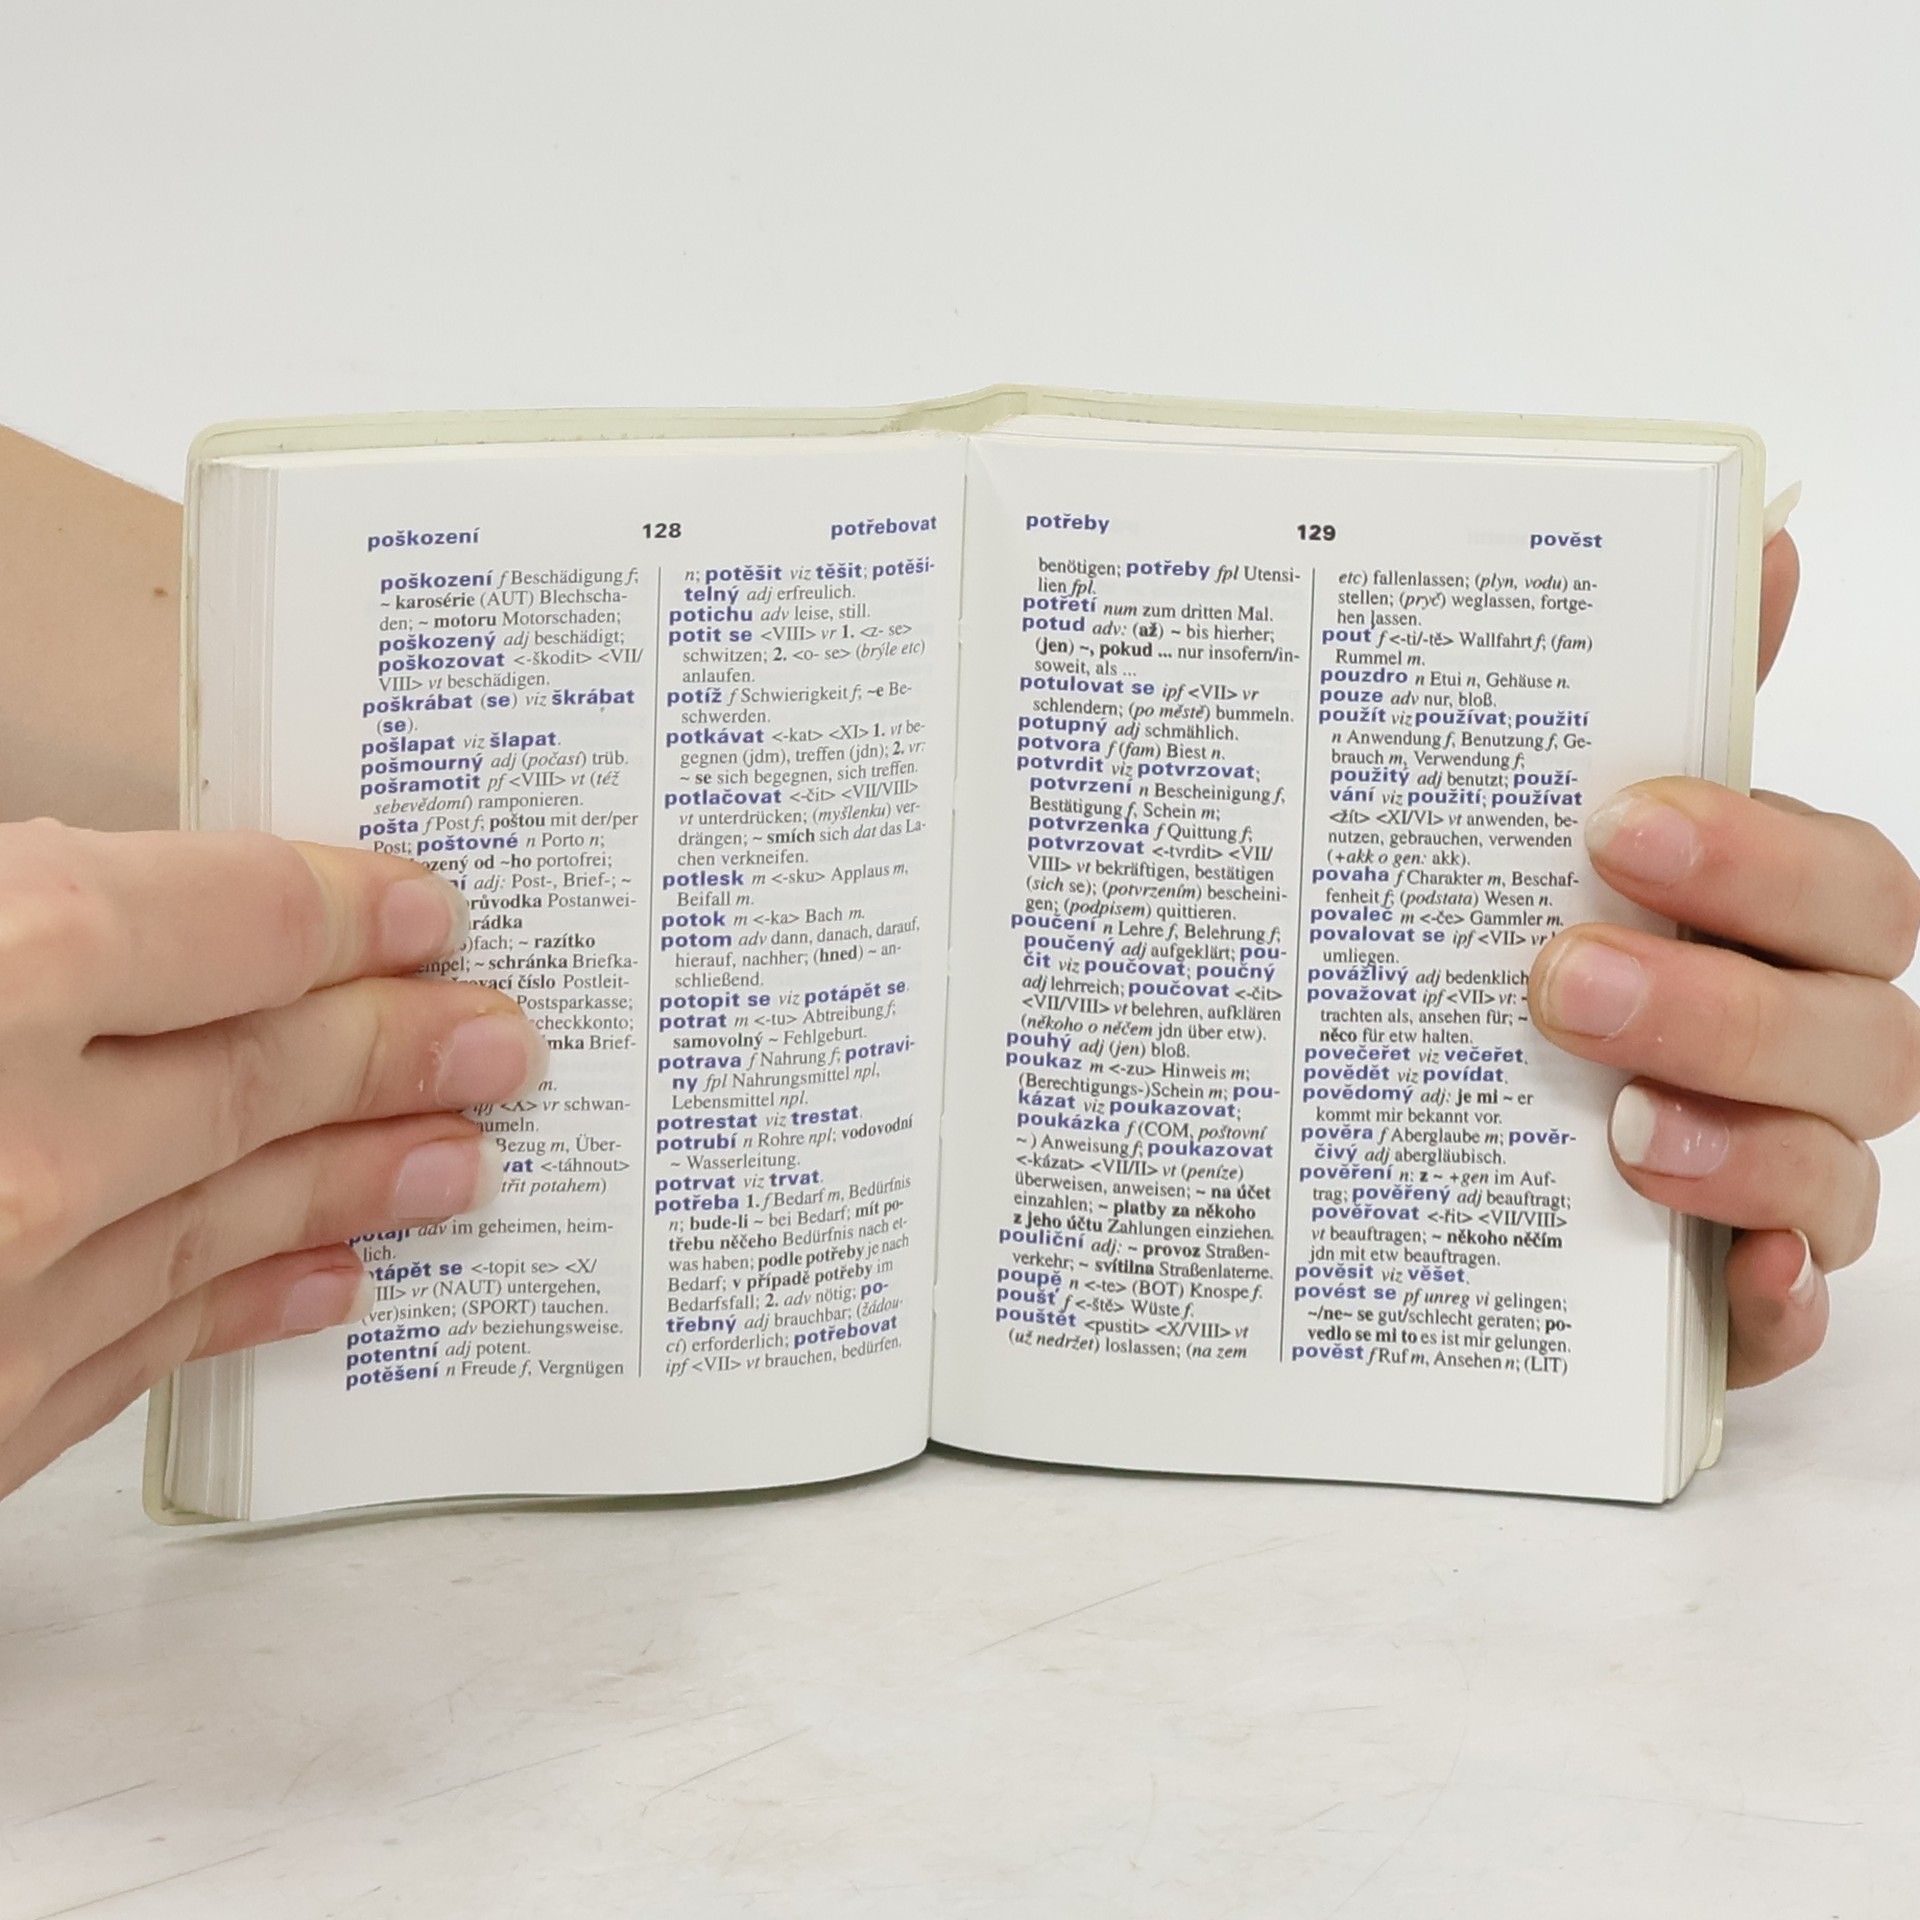 poškození 128 potřebovat
poškození f Beschädigung f;
~ karosérie (AUT) Blechscha-
den; ~ motoru Motorschaden;
poškozený adj beschädigt;
poškozovat <-škodit> <VII/
VIII> vt beschädigen.
poškrábat (se) viz škrábat
(se).
pošlapat viz šlapat.
pošmourný adj (počasí) trüb.
pošramotit pf <VIII> vt (též
sebevědomí) ramponieren.
pošta f Post f; poštou mit der/per
Post; poštovné n Porto n;
od ~ho portofrei;
adj: Post-, Brief-; ~
Postanwei-
~ razítko
~ schránka Briefka-
číslo Postleit-
Postsparkasse;
Brief-
m.
vr schwan-
Bezug m, Über-
<-táhnout>
potahem)
adv im geheimen, heim-
lich.
<-topit se> <X/
vr (NAUT) untergehen,
(ver)sinken; (SPORT) tauchen.
potažmo adv beziehungsweise.
potentní adj potent.
potěšení n Freude f, Vergnügen
n; potěšit viz těšit; potěši-
telný adj erfreulich.
potichu adv leise, still.
potit se <VIII> vr 1. <z- se>
schwitzen; 2. <o- se> (brýle etc)
anlaufen.
potíž f Schwierigkeit f; ~e Be-
schwerden.
potkávat <-kat> <XI> 1. vt be-
gegnen (jdm), treffen (jdn); 2. vr:
~ se sich begegnen, sich treffen.
potlačovat <-čit> <VII/VIII>
vt unterdrücken; (myšlenku) ver-
drängen; ~ smích sich dat das La-
chen verkneifen.
potlesk m <-sku> Applaus m,
Beifall m.
potok m <-ka> Bach m.
potom adv dann, danach, darauf,
hierauf, nachher; (hned) ~ an-
schließend.
potopit se viz potápět se.
potrat m <-tu> Abtreibung f;
samovolný ~ Fehlgeburt.
potrava f Nahrung f; potravi-
ny fpl Nahrungsmittel npl,
Lebensmittel npl.
potrestat viz trestat.
potrubí n Rohre npl; vodovodní
~ Wasserleitung.
potrvat viz trvat.
potřeba 1. f Bedarf m, Bedürfnis
n; bude-li ~ bei Bedarf; mít po-
třebu něčeho Bedürfnis nach et-
was haben; podle potřeby je nach
Bedarf; v případě potřeby im
Bedarfsfall; 2. adv nötig; po-
třebný adj brauchbar; (žádou-
cí) erforderlich; potřebovat
ipf <VII> vt brauchen, bedürfen,
potřeby 129 pověst
benötigen; potřeby fpl Utensi-
lien fpl.
potřetí num zum dritten Mal.
potud adv: (až) ~ bis hierher;
(jen) ~, pokud ... nur insofern/in-
soweit, als ...
potulovat se ipf <VII> vr
schlendern; (po městě) bummeln.
potupný adj schmählich.
potvora f (fam) Biest n.
potvrdit viz potvrzovat;
potvrzení n Bescheinigung f,
Bestätigung f, Schein m;
potvrzenka f Quittung f;
potvrzovat <-tvrdit> <VII/
VIII> vt bekräftigen, bestätigen
(sich se); (potvrzením) bescheini-
gen; (podpisem) quittieren.
poučení n Lehre f, Belehrung f;
poučený adj aufgeklärt; pou-
čit viz poučovat; poučný
adj lehrreich; poučovat <-čit>
<VII/VIII> vt belehren, aufklären
(někoho o něčem jdn über etw).
pouhý adj (jen) bloß.
poukaz m <-zu> Hinweis m;
(Berechtigungs-)Schein m; pou-
kázat viz poukazovat;
poukázka f (COM, poštovní
~ ) Anweisung f; poukazovat
<-kázat> <VII/II> vt (peníze)
überweisen, anweisen; ~ na účet
einzahlen; ~ platby za někoho
z jeho účtu Zahlungen einziehen.
pouliční adj: ~ provoz Straßen-
verkehr; ~ svítilna Straßenlaterne.
poupě n <-te> (BOT) Knospe f.
poušť f <-ště> Wüste f.
pouštět <pustit> <X/VIII> vt
(už nedržet) loslassen; (na zem
etc) fallenlassen; (plyn, vodu) an-
stellen; (pryč) weglassen, fortge-
hen lassen.
pouť f <-ti/-tě> Wallfahrt f; (fam)
Rummel m.
pouzdro n Etui n, Gehäuse n.
pouze adv nur, bloß.
použít viz používat; použití
n Anwendung f, Benutzung f, Ge-
brauch m, Verwendung f;
použitý adj benutzt; použí-
vání viz použití; používat
<žít> <XI/VI> vt anwenden, be-
nutzen, gebrauchen, verwenden
(+akk o gen: akk).
povaha f Charakter m, Beschaf-
fenheit f; (podstata) Wesen n.
povaleč m <-če> Gammler m.
povalovat se ipf <VII> vr
umliegen.
povážlivý adj bedenklich
považovat ipf <VII> vt: ~
trachten als, ansehen für; ~
něco für etw halten.
povečeřet viz večeřet.
povědět viz povídat.
povědomý adj: je mi ~ er
kommt mir bekannt vor.
pověra f Aberglaube m; pověr-
čivý adj abergläubisch.
pověření n: z ~ +gen im Auf-
trag; pověřený adj beauftragt;
pověřovat <-řit> <VII/VIII>
vt beauftragen; ~ někoho něčím
jdn mit etw beauftragen.
pověsit viz věšet.
povést se pf unreg vi gelingen;
~/ne~ se gut/schlecht geraten; po-
vedlo se mi to es ist mir gelungen.
pověst f Ruf m, Ansehen n; (LIT)